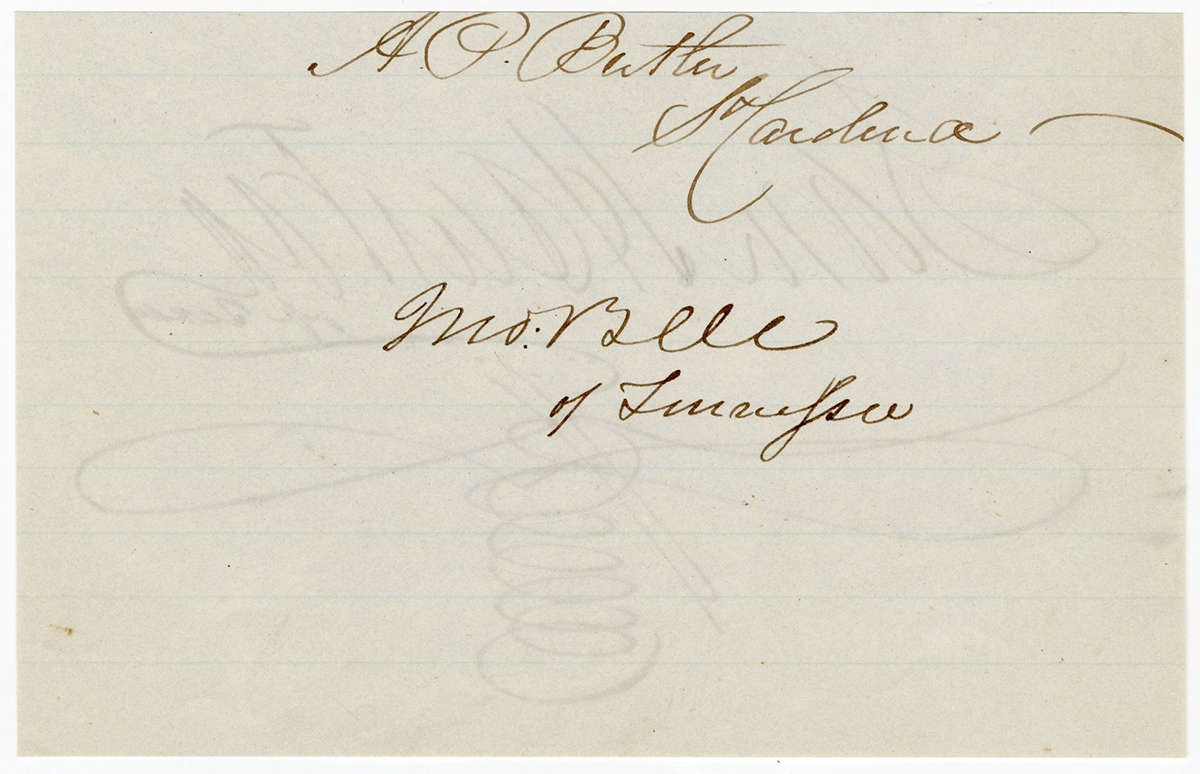 A. P. Butler
S Carolina
Jno. Bell
of Tennessee